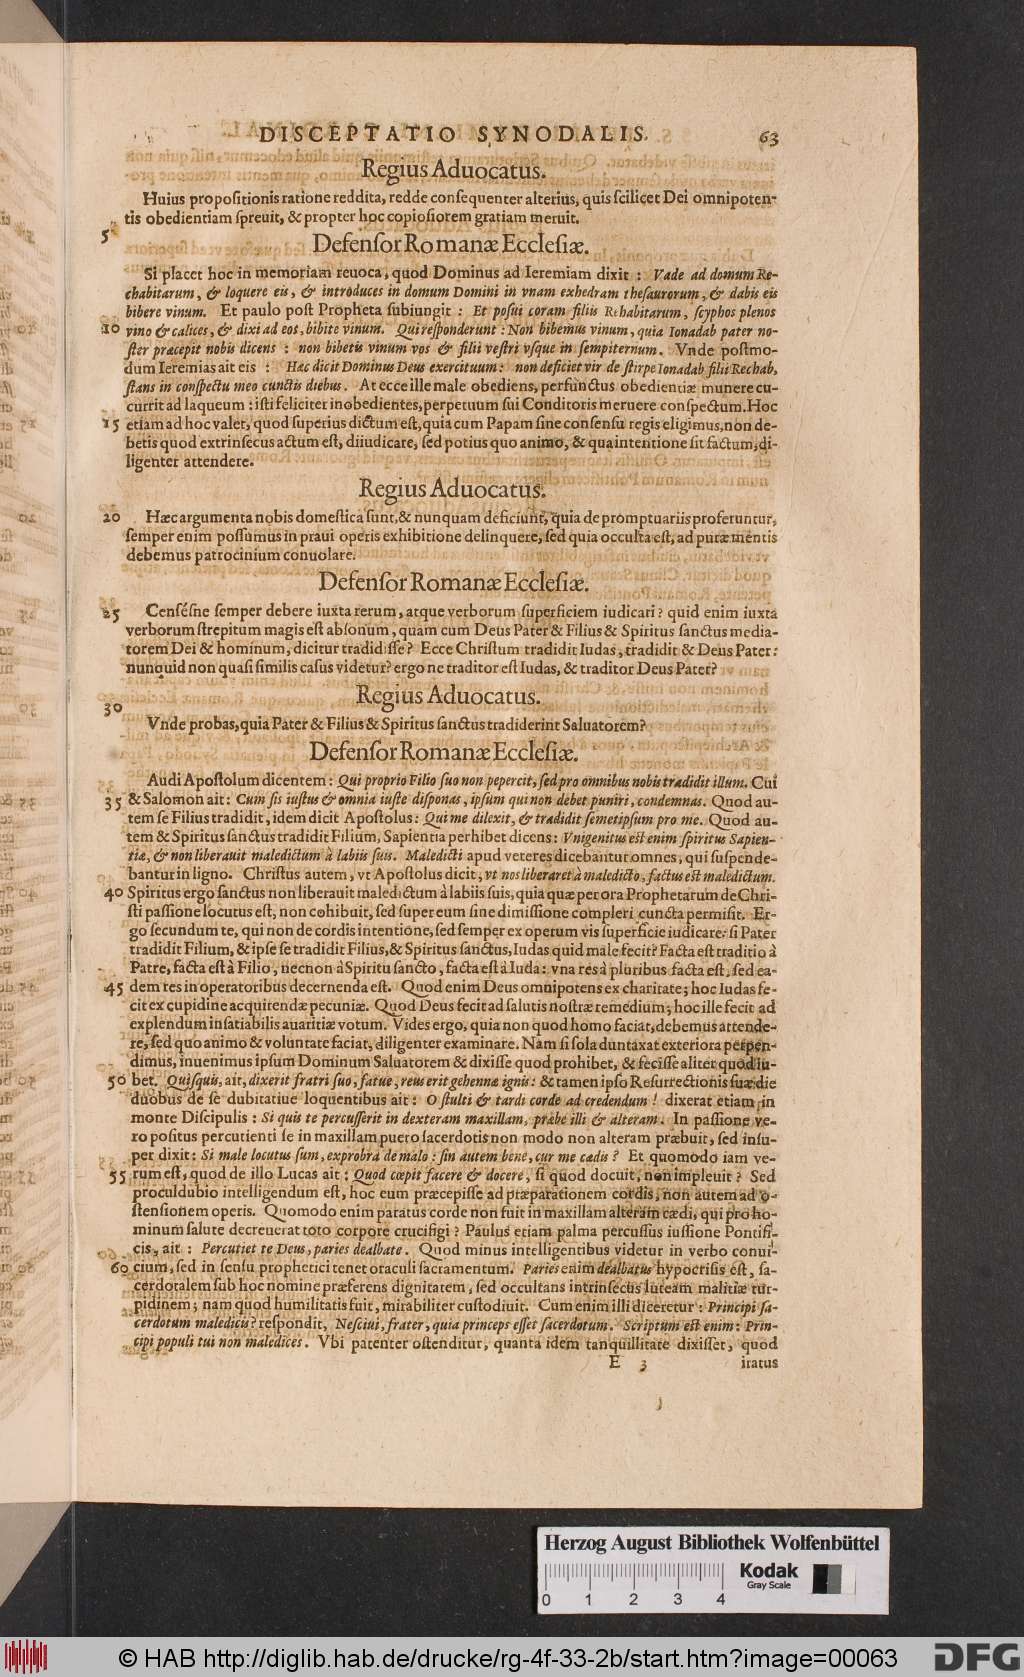 DISCEPTATIO SYNODALIS. 63
Regius Aduocatus.
Huius propositionis ratione reddita, redde consequenter alterius, quis scilicet Dei omnipoten-
tis obedientiam spreuit, & propter hoc copiosiorem gratiam meruit.
5
Defensor Romanæ Ecclesiæ.
Si placet hoc in memoriam reuoca, quod Dominus ad Ieremiam dixit : Vade ad domum Re-
chabitarum, & loquere eis, & introduces in domum Domini in vnam exhedram thesaurorum, & dabis eis
bibere vinum. Et paulo post Propheta subiungit : Et posui coram filiis Rehabitarum, scyphos plenos
10 vino & calices, & dixi ad eos, bibite vinum. Qui responderunt : Non bibemus vinum, quia Ionadab pater no-
ster præcepit nobis dicens : non bibetis vinum vos & filii vestri vsque in sempiternum. Vnde postmo-
dum Ieremias ait eis : Hæc dicit Dominus Deus exercituum: non deficiet vir de stirpe Ionadab filii Rechab,
stans in conspectu meo cunctis diebus. At ecce ille male obediens, perfunctus obedientiæ munere cu-
currit ad laqueum : isti feliciter inobedientes, perpetuum sui Conditoris meruere conspectum. Hoc
15 etiam ad hoc valet, quod superius dictum est, quia cum Papam sine consensu regis eligimus, non de-
betis quod extrinsecus actum est, diiudicare, sed potius quo animo, & qua intentione sit factum, di-
ligenter attendere.
Regius Aduocatus.
20 Hæc argumenta nobis domestica sunt, & nunquam deficiunt, quia de promptuariis proferuntur,
semper enim possumus in praui operis exhibitione delinquere, sed quia occulta est, ad puræ mentis
debemus patrocinium conuolare.
Defensor Romanæ Ecclesiæ.
25 Censésne semper debere iuxta rerum, atque verborum superficiem iudicari ? quid enim iuxta
verborum strepitum magis est absonum, quam cum Deus Pater & Filius & Spiritus sanctus media-
torem Dei & hominum, dicitur tradidisse? Ecce Christum tradidit Iudas, tradidit & Deus Pater:
nunquid non quasi similis casus videtur? ergo ne traditor est Iudas, & traditor Deus Pater?
Regius Aduocatus.
30
Vnde probas, quia Pater & Filius & Spiritus sanctus tradiderint Saluatorem?
Defensor Romanæ Ecclesiæ.
Audi Apostolum dicentem : Qui proprio Filio suo non pepercit, sed pro omnibus nobis tradidit illum. Cui
35 & Salomon ait : Cum sis iustus & omnia iuste disponas, ipsum qui non debet puniri, condemnas. Quod au-
tem se Filius tradidit, idem dicit Apostolus : Qui me dilexit, & tradidit semetipsum pro me. Quod au-
tem & Spiritus sanctus tradidit Filium, Sapientia perhibet dicens : Vnigenitus est enim spiritus Sapien-
tiæ, & non liberauit maledictum à labiis suis. Maledicti apud veteres dicebantur omnes, qui suspende-
bantur in ligno. Christus autem, vt Apostolus dicit, vt nos liberaret à maledicto, factus est maledictum.
40 Spiritus ergo sanctus non liberauit maledictum à labiis suis, quia quæ per ora Prophetarum de Chri-
sti passione locutus est, non cohibuit, sed super eum sine dimissione compleri cuncta permisit. Er-
go secundum te, qui non de cordis intentione, sed semper ex operum vis superficie iudicare: si Pater
tradidit Filium, & ipse se tradidit Filius, & Spiritus sanctus, Iudas quid male fecit? Facta est traditio à
Patre, facta est à Filio, necnon à Spiritu sancto, facta est à Iuda : vna res à pluribus facta est, sed ea-
45 dem res in operatoribus decernenda est. Quod enim Deus omnipotens ex charitate ; hoc Iudas fe-
cit ex cupidine acquirendæ pecuniæ. Quod Deus fecit ad salutis nostræ remedium ; hoc ille fecit ad
explendum insatiabilis auaritiæ votum. Vides ergo, quia non quod homo faciat, debemus attende-
re, sed quo animo & voluntate faciat, diligenter examinare. Nam si sola duntaxat exteriora perpen-
dimus, inuenimus ipsum Dominum Saluatorem & dixisse quod prohibet, & fecisse aliter quod iu-
50 bet. Quisquis, ait, dixerit fratri suo, fatue, reus erit gehennæ ignis : & tamen ipso Resurrectionis suæ die
duobus de se dubitatiue loquentibus ait : O stulti & tardi corde ad credendum ! dixerat etiam in
monte Discipulis : Si quis te percusserit in dexteram maxillam, præbe illi & alteram. In passione ve-
ro positus percutienti se in maxillam puero sacerdotis non modo non alteram præbuit, sed insu-
per dixit : Si male locutus sum, exprobra de malo : sin autem bene, cur me cædis ? Et quomodo iam ve-
55 rum est, quod de illo Lucas ait : Quod cœpit facere & docere, si quod docuit, non impleuit ? Sed
proculdubio intelligendum est, hoc eum præcepisse ad præparationem cordis, non autem ad o-
stensionem operis. Quomodo enim paratus corde non fuit in maxillam alteram cædi, qui pro ho-
minum salute decreuerat toto corpore crucifigi ? Paulus etiam palma percussus iussione Pontifi-
cis, ait : Percutiet te Deus, paries dealbate. Quod minus intelligentibus videtur in verbo conui-
60 cium, sed in sensu prophetici tenet oraculi sacramentum. Paries enim dealbatus hypocrisis est, sa-
cerdotalem sub hoc nomine præferens dignitatem, sed occultans intrinsecus luteam malitiæ tur-
pidinem ; nam quod humilitatis fuit, mirabiliter custodiuit. Cum enim illi diceretur : Principi sa-
cerdotum maledicis? respondit, Nesciui, frater, quia princeps esset sacerdotum. Scriptum est enim : Prin-
cipi populi tui non maledices. Vbi patenter ostenditur, quanta idem tanquillitate dixisset, quod
E 3 iratus
Herzog August Bibliothek Wolfenbüttel
Kodak
Gray Scale
0 1 2 3 4
© HAB http://diglib.hab.de/drucke/rg-4f-33-2b/start.htm?image=00063
DFG